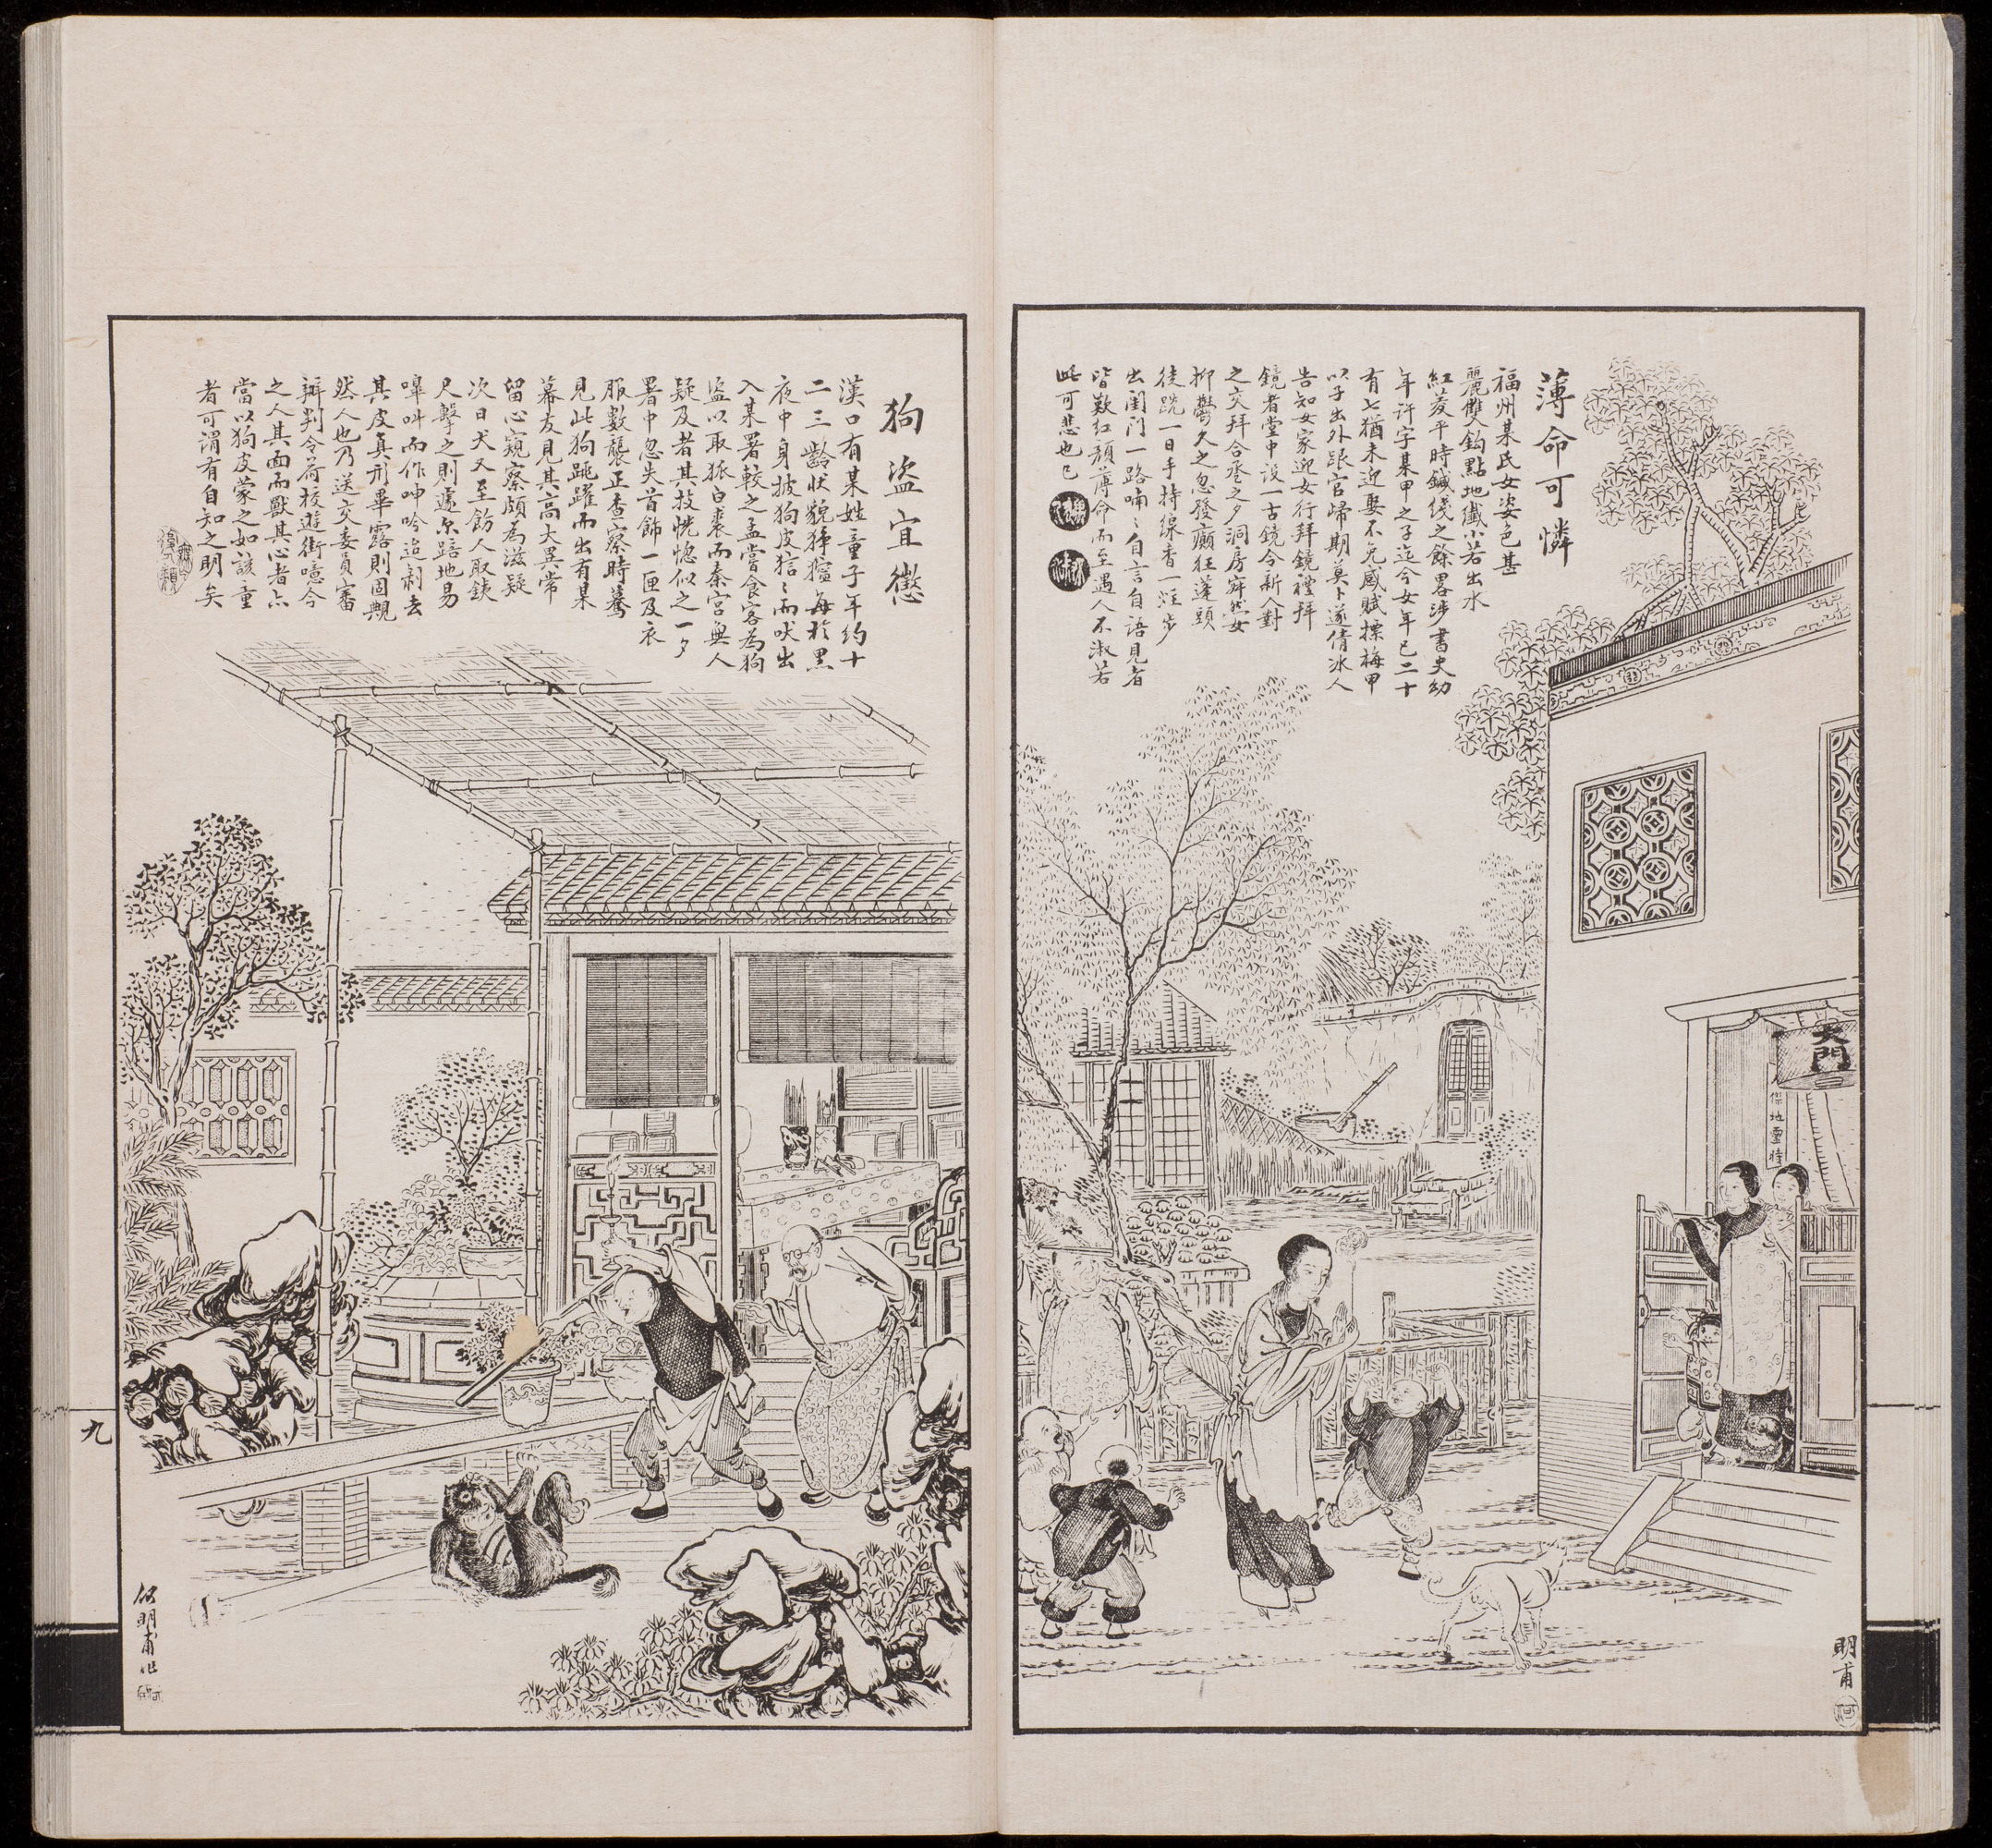 薄命可憐
福州某氏女姿色甚
麗雙鈎點地纖小若出水
紅菱平時鍼綫之餘畧涉書史幼
年許字某甲之子迄今女年已二十
有七猶未迎娶不免感賦摽梅甲
以子出外跟官歸期莫卜遂倩冰人
告知女家迎女行拜鏡禮拜
鏡者堂中設一古鏡令新人對
之交拜合巹之夕洞房寂然女
抑鬱久之忽發癲狂蓬頭
徒跣一日手持線香一炷步
出閨門一路喃〻自言自語見者
皆歎紅顏薄命而至遇人不淑若
此可悲也已
天門
傑地靈時
明甫
狗盜宜懲
漢口有某姓童子年約十
二三齡狀貌猙獰每於黑
夜中身披狗皮狺〻而吠出
入某署較之孟嘗食客為狗
盜以取狐白裘而秦宮無人
疑及者其技恍惚似之一夕
署中忽失首飾一匣及衣
服數襲正查察時驀
見此狗跳躍而出有某
幕友見其高大異常
留心窺察頗為滋疑
次日犬又至飭人取鐵
尺擊之則遽尔踣地易
嘷叫而作呻吟迨剝去
其皮真形畢露則固覥
然人也乃送交委員審
辦判令荷校遊街噫今
之人其面而獸其心者亦
當以狗皮蒙之如該童
者可謂有自知之明矣
何明甫作
九